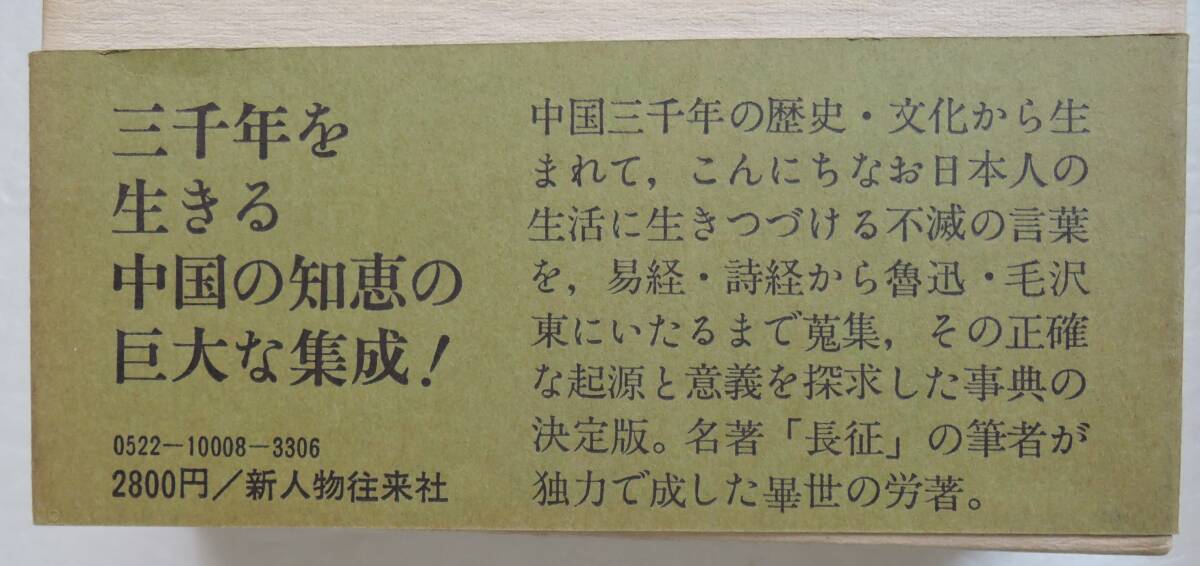 三千年を
生きる
中国の知恵の
巨大な集成!
0522-10008-3306
2800円/新人物往来社
中国三千年の歴史・文化から生
まれて，こんにちなお日本人の
生活に生きつづける不滅の言葉
を，易経・詩経から魯迅・毛沢
東にいたるまで蒐集，その正確
な起源と意義を探求した事典の
決定版。名著「長征」の筆者が
独力で成した畢世の労著。